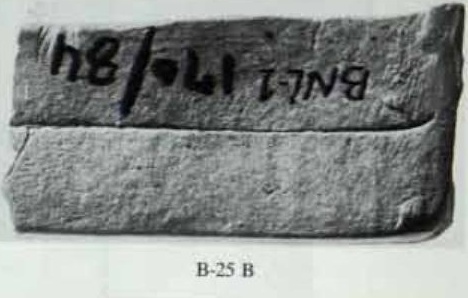 BNL-1 170/84
B-25 B